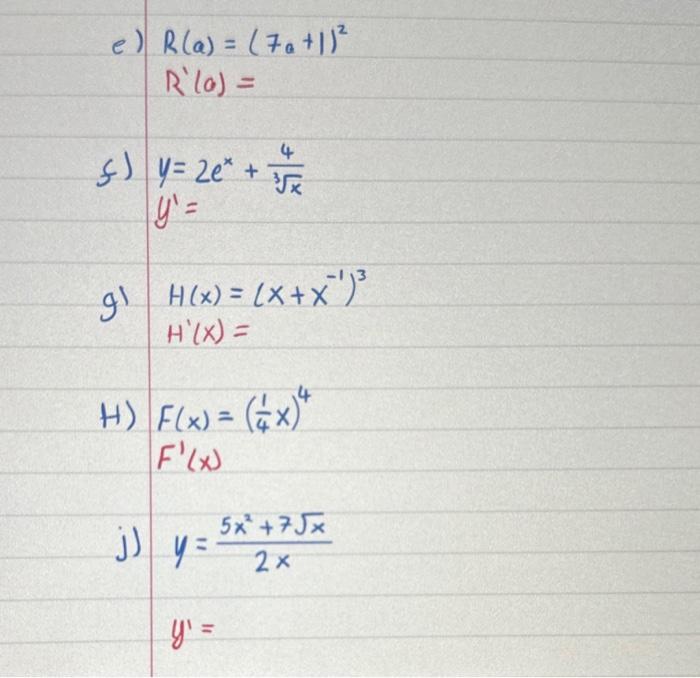 e) R(a) = (7a+1)²
R'(a) =
f) y = 2eˣ + 4/∛x
y' =
g) H(x) = (x+x⁻¹)³
H'(x) =
H) F(x) = (1/4 x)⁴
F'(x)
j) y = (5x² + 7√x)/(2x)
y' =